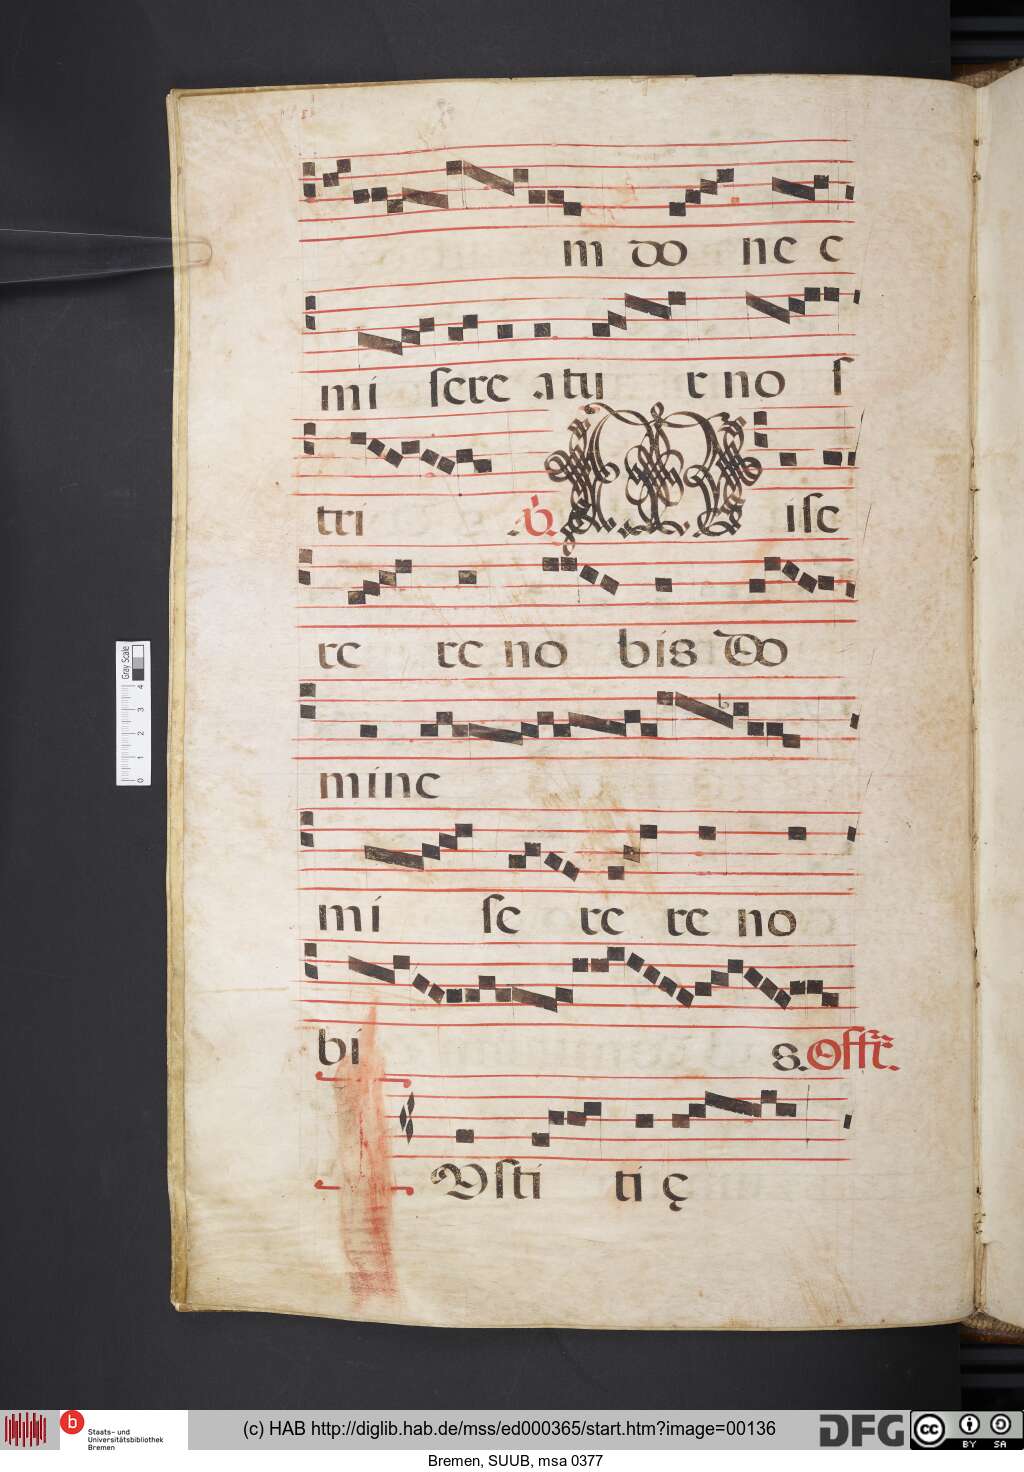 m do ne c
mi sere atu r no s
tri ℣. M ise
re re no bis Do
mine
mi se re re no
bi s. Offr.
I Usti ti ę
Gray Scale
4 3 2 1 0
b Staats- und Universitätsbibliothek Bremen
(c) HAB http://diglib.hab.de/mss/ed000365/start.htm?image=00136
DFG
cc BY SA
Bremen, SUUB, msa 0377